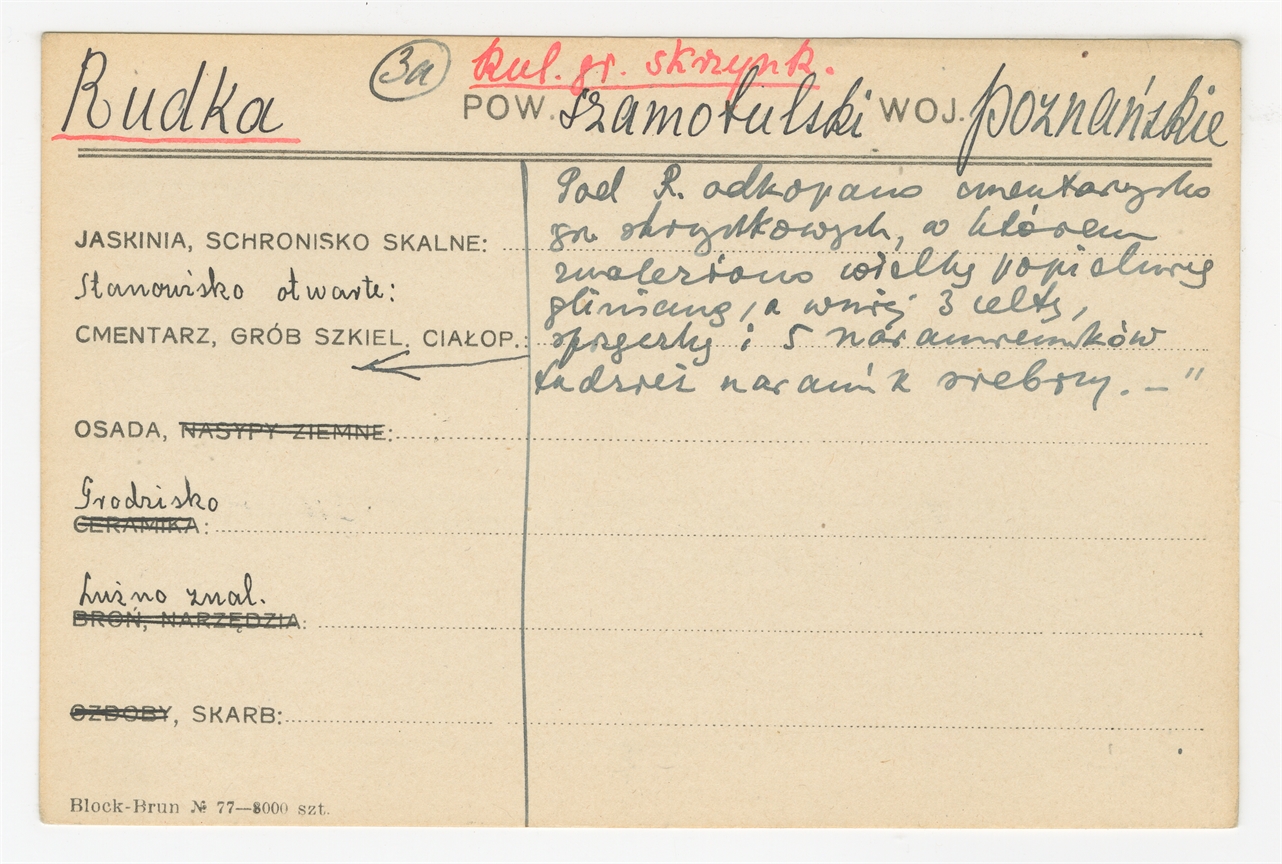 3a kul. gr. skrzynk.
Rudka POW. szamotulski WOJ. poznańskie
Pod R. odkopano cmentarzysko
gr. skrzynkowych, w którem
JASKINIA, SCHRONISKO SKALNE:
znaleziono wielką popielnicę
Stanowisko otwarte:
glinianą, a w niej 3 celty,
CMENTARZ, GRÓB SZKIEL. CIAŁOP.:
i 5 naramienników
tudzież naramnik srebrny. – "
OSADA, NASYPY ZIEMNE:
Grodzisko
CERAMIKA:
Luźno znal.
BROŃ, NARZĘDZIA:
OZDOBY, SKARB:
Block-Brun № 77—8000 szt.